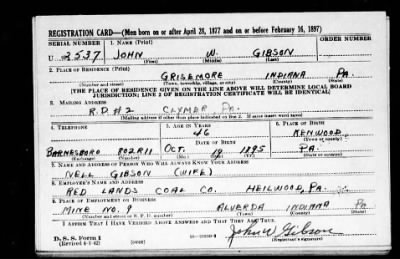 REGISTRATION CARD—(Men born on or after April 28, 1877 and on or before February 16, 1897)
SERIAL NUMBER 1. NAME (Print) ORDER NUMBER
U 2537 JOHN W. GIBSON
(First) (Middle) (Last)
2. PLACE OF RESIDENCE (Print)
GRISEMORE INDIANA PA.
(Number and street) (Town, township, village, or city) (County) (State)
[THE PLACE OF RESIDENCE GIVEN ON THE LINE ABOVE WILL DETERMINE LOCAL BOARD
JURISDICTION; LINE 2 OF REGISTRATION CERTIFICATE WILL BE IDENTICAL]
3. MAILING ADDRESS
R.D.#2 CLYMER PA.
[Mailing address if other than place indicated on line 2. If same insert word same]
4. TELEPHONE 5. AGE IN YEARS 6. PLACE OF BIRTH
46 KENWOOD
DATE OF BIRTH (Town or county)
BARNESBORO 802R11 OCT. 19 1895 PA.
(Exchange) (Number) (Mo.) (Day) (Yr.) (State or country)
7. NAME AND ADDRESS OF PERSON WHO WILL ALWAYS KNOW YOUR ADDRESS
NELL GIBSON (WIFE)
8. EMPLOYER'S NAME AND ADDRESS
RED LANDS COAL CO. HEILWOOD, PA.
9. PLACE OF EMPLOYMENT OR BUSINESS
MINE NO. 9 ALVERDA INDIANA PA
(Number and street or R. F. D. number) (Town) (County) (State)
I AFFIRM THAT I HAVE VERIFIED ABOVE ANSWERS AND THAT THEY ARE TRUE.
D. S. S. Form 1
(Revised 4-1-42) (over)
John W Gibson